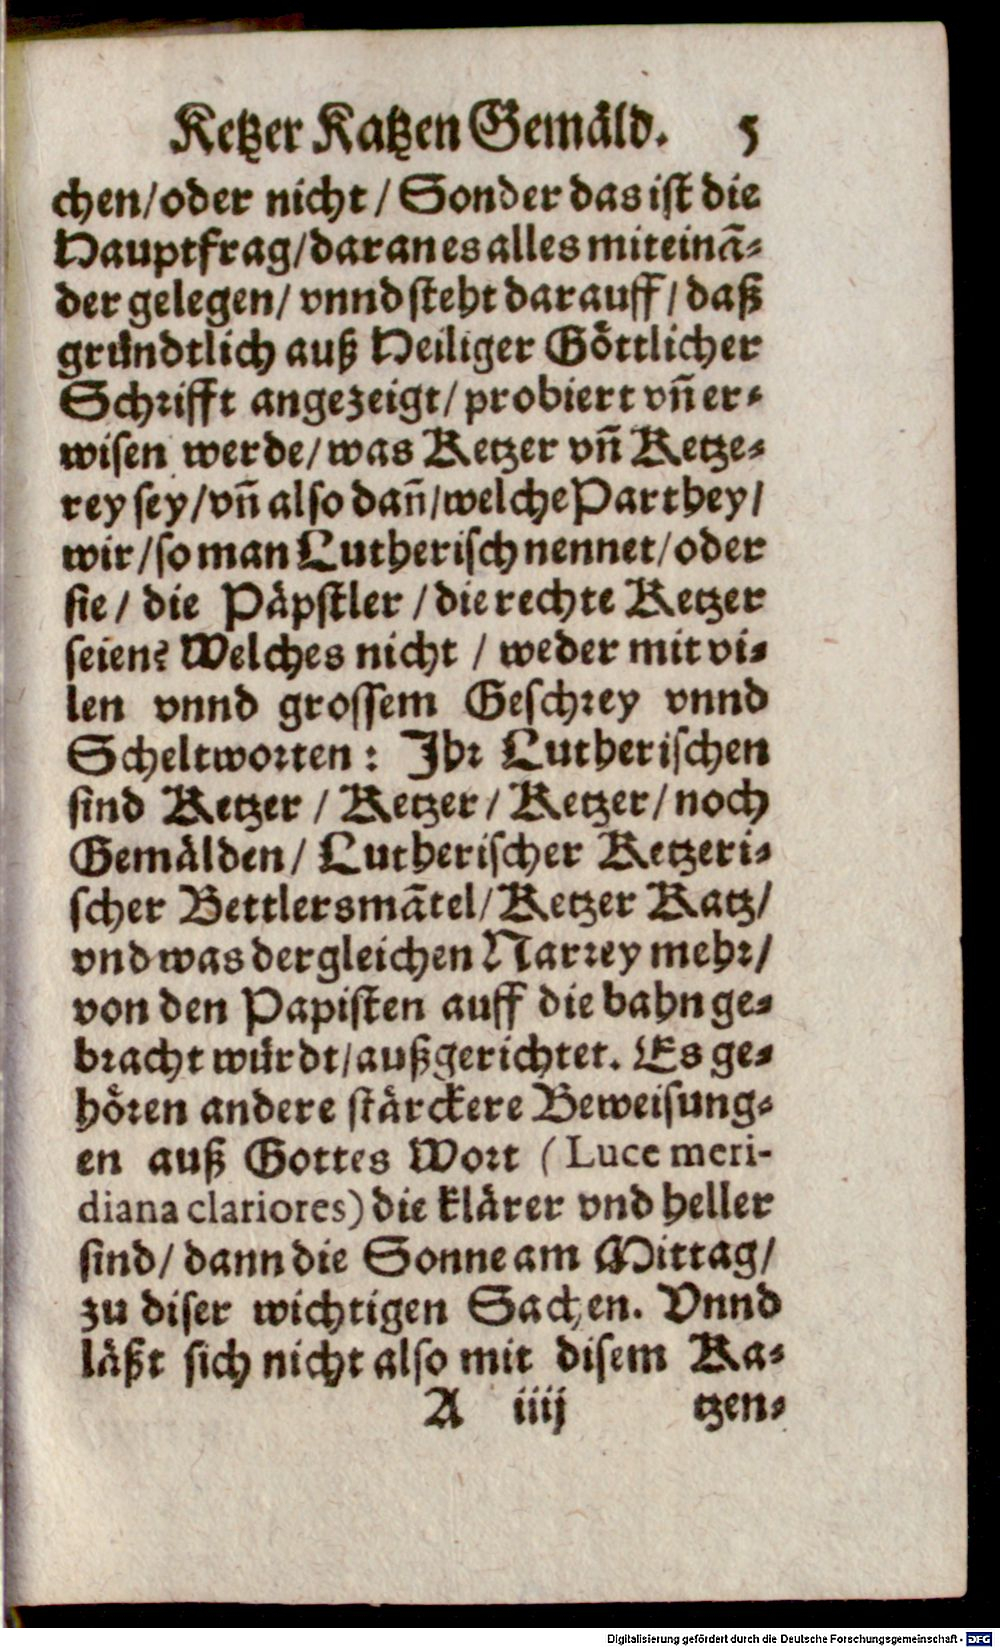 Ketzer Katzen Gemäld. 5
chen/oder nicht / Sonder das ist die
Hauptfrag/daran es alles miteinā-
der gelegen/ vnnd steht darauff/ daß
gründtlich auß Heiliger Göttlicher
Schrifft angezeigt/ probiert vñ er-
wisen werde/was Ketzer vñ Ketze-
rey sey/vñ also dañ/welche Parthey/
wir/so man Lutherisch nennet/oder
sie / die Päpstler / die rechte Ketzer
seien? Welches nicht / weder mit vi-
len vnnd grossem Geschrey vnnd
Scheltworten: Ihr Lutherischen
sind Ketzer / Ketzer/ Ketzer/noch
Gemälden/ Lutherischer Ketzeri-
scher Bettlersmātel/Ketzer Katz/
vnd was dergleichen Narrey mehr/
von den Papisten auff die bahn ge-
bracht würdt/außgerichtet. Es ge-
hören andere stärckere Beweisung-
en auß Gottes Wort (Luce meri-
diana clariores) die klärer vnd heller
sind/ dann die Sonne am Mittag/
zu diser wichtigen Sachen. Vnnd
läßt sich nicht also mit disem Ka-
A iiij tzen-
Digitalisierung gefördert durch die Deutsche Forschungsgemeinschaft - DFG